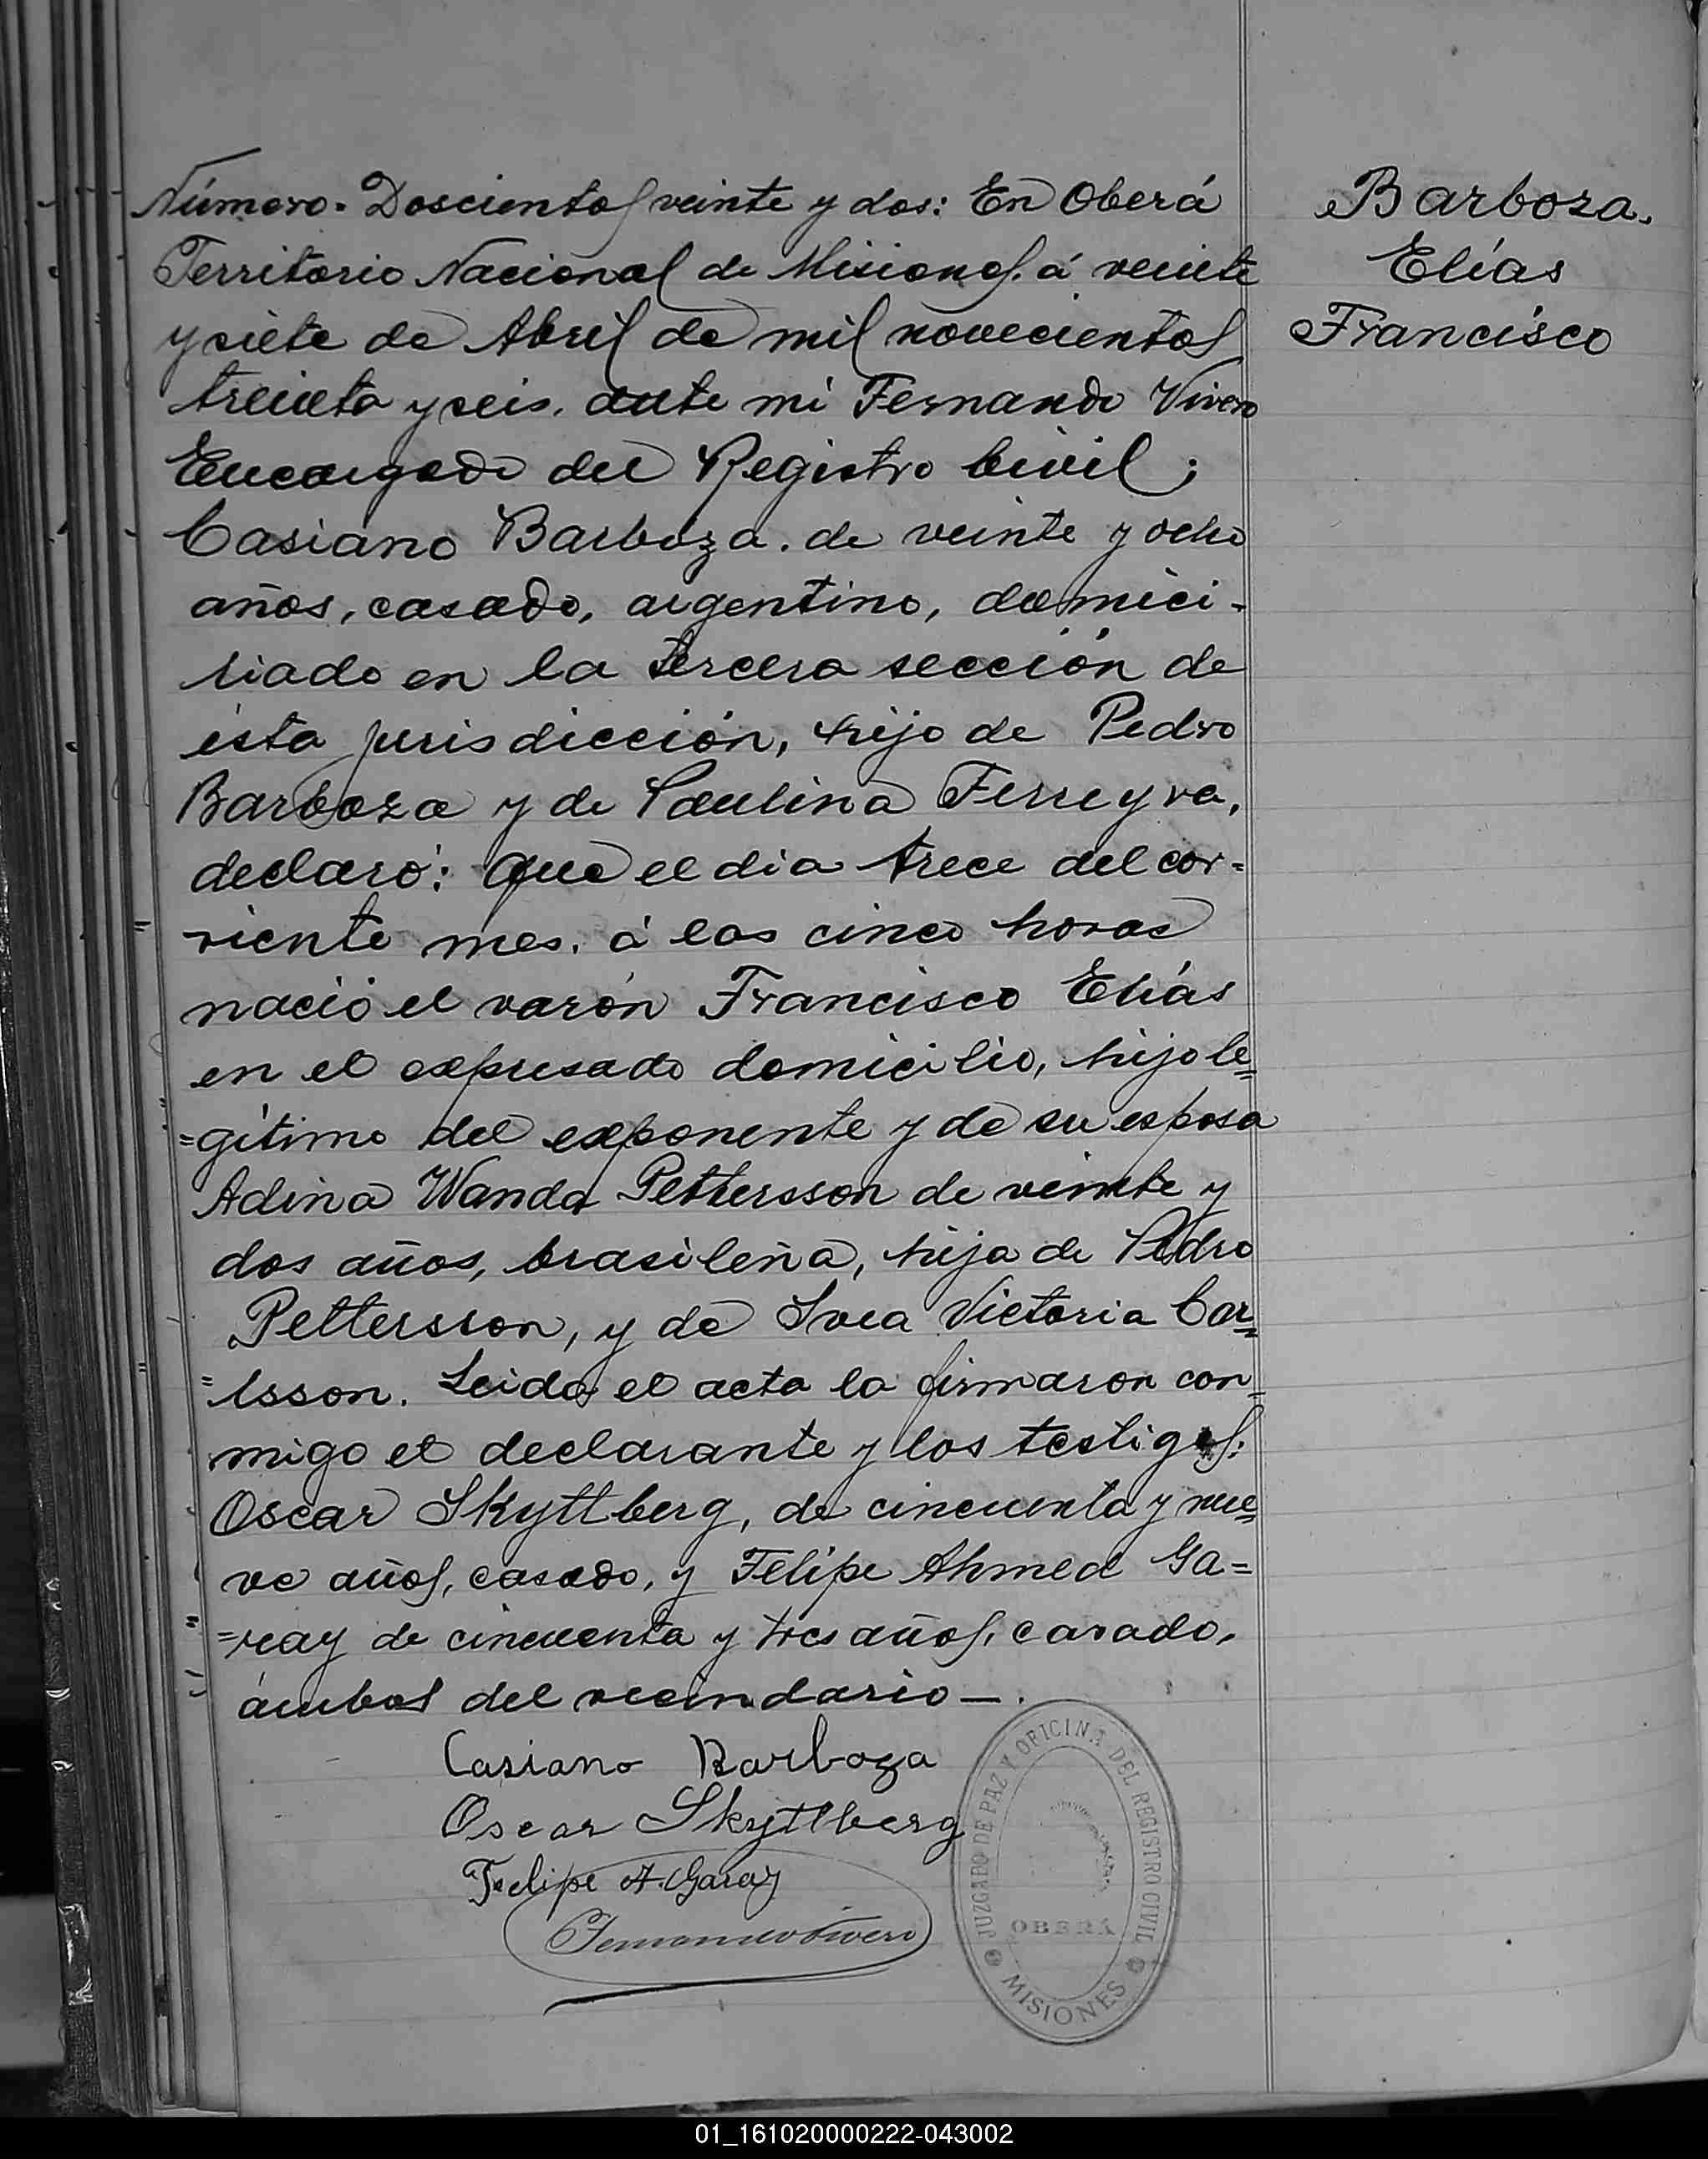 Número. Doscientos veinte y dos: En Oberá
Territorio Nacional de Misiones. á veinte
y siete de Abril de mil novecientos
treinta y seis. ante mi Fernando Vivero
Encargado del Registro Civil;
Casiano Barboza. de veinte y ocho
años, casado, argentino, domici-
liado en la tercera sección de
ésta jurisdicción, hijo de Pedro
Barboza y de Paulina Ferreyra,
declaró: Que el dia trece del cor-
riente mes. á las cinco horas
nació el varón Francisco Elías
en el expresado domicilio, hijo le=
=gítimo del exponente y de su esposa
Adina Wanda Pettersson de veinte y
dos años, brasileña, hija de Pedro
Pettersson, y de Svea Victoria Car=
=lsson. Leida el acta la firmaron con=
migo el declarante y los testigos:
Oscar Skyttberg, de cincuenta y nue=
ve años, casado, y Felipe Ahmed Ga=
=ray de cincuenta y tres años, casado,
ámbos del vecindario —.
Barboza.
Elías
Francisco
Casiano Barboza
Oscar Skyttberg
Felipe A. Garay
Fernando Vivero
JUZGADO DE PAZ Y OFICINA DEL REGISTRO CIVIL
OBERÁ
MISIONES
01_161020000222-043002